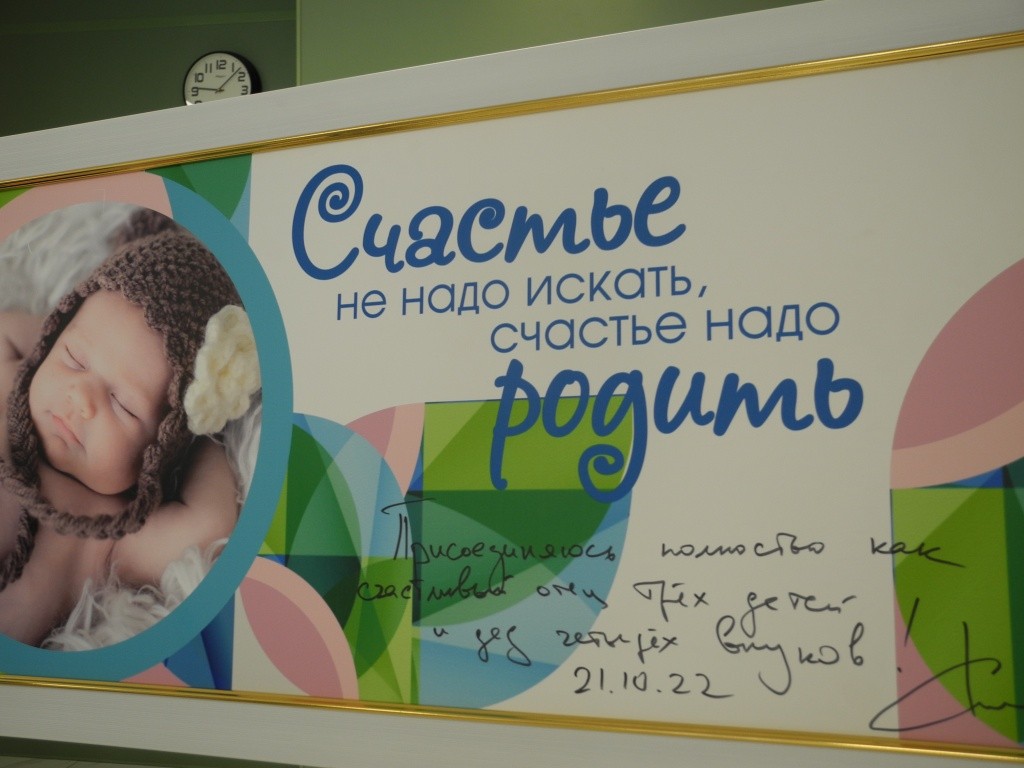 Счастье
не надо искать,
счастье надо
родить
Присоединяюсь полностью как
счастливый отец трёх детей
и дед четырёх внуков!
21.10.22